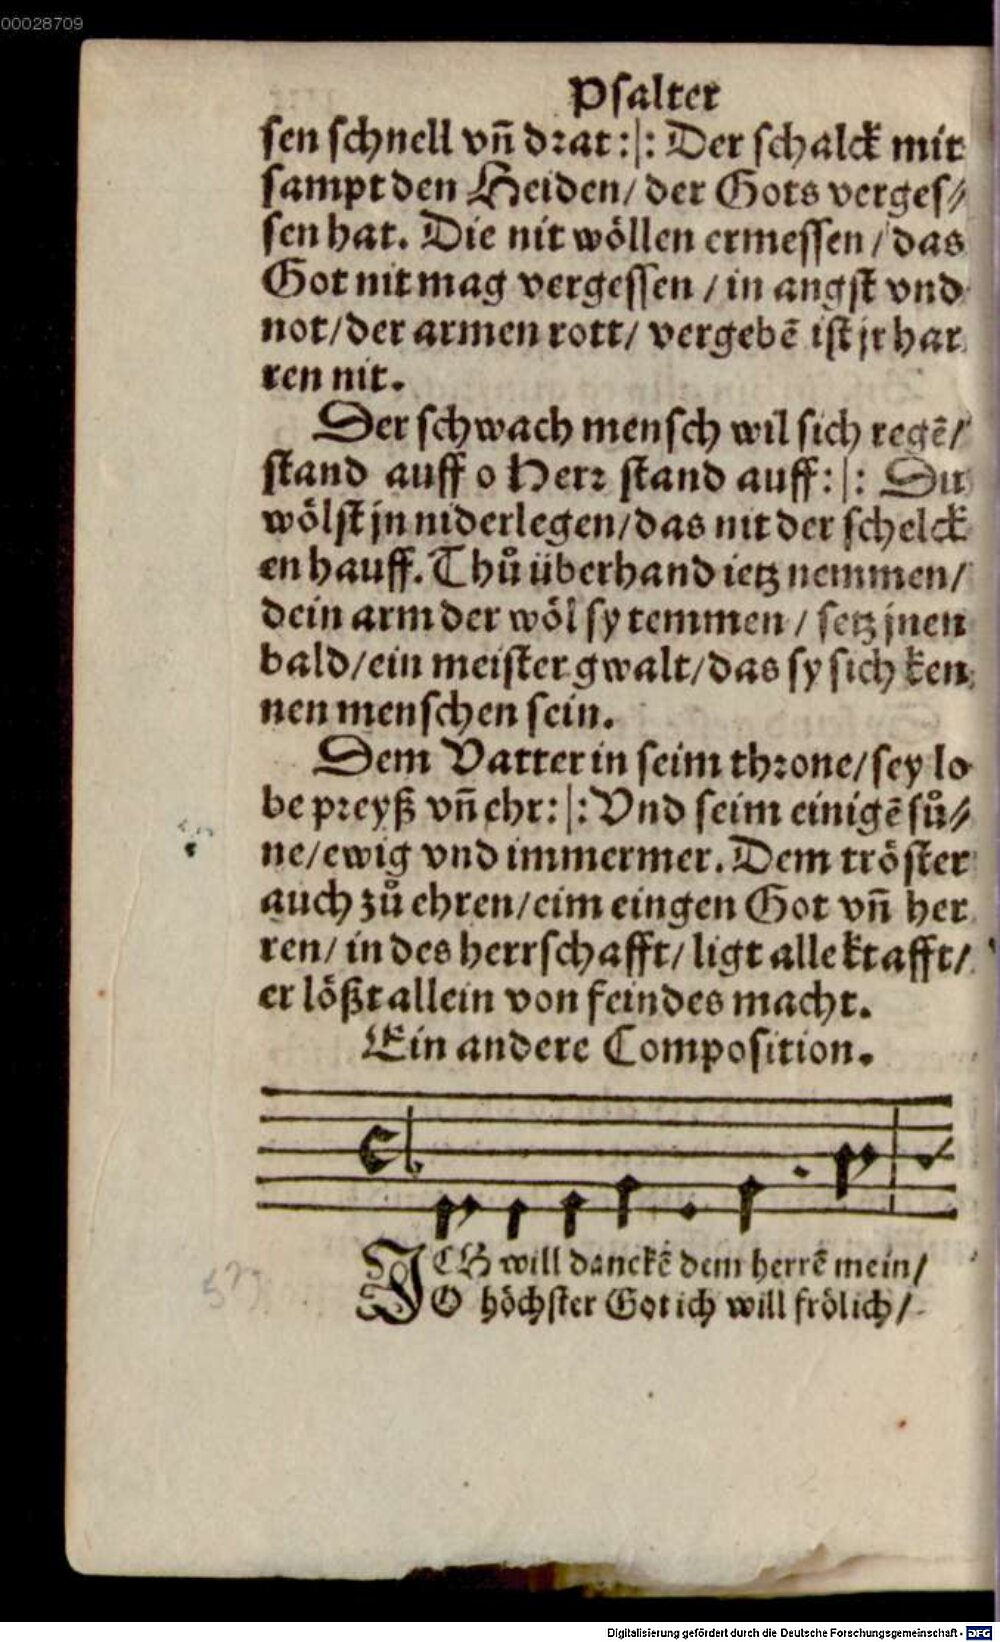 00028709
Psalter
sen schnell vñ drat :|: Der schalck mit
sampt den Heiden/ der Gots verges⸗
sen hat. Die nit wöllen ermessen / das
Got nit mag vergessen / in angst vnd
not/der armen rott/ vergebẽ ist jr har
ren nit.
Der schwach mensch wil sich regẽ/
stand auff o Herr stand auff :|: Du
wölst jn niderlegen/das nit der schelck
en hauff. Thů überhand ietz nemmen/
dein arm der wöl sy temmen / setz jnen
bald/ein meister gwalt/das sy sich ken
nen menschen sein.
Dem Vatter in seim throne/sey lo
be preyß vñ ehr :|: Vnd seim einigẽ sů⸗
ne/ewig vnd immermer. Dem tröster
auch zů ehren/eim eingen Got vñ her
ren/ in des herrschafft/ ligt alle krafft/
er lößt allein von feindes macht.
Ein andere Composition.
ICH will danckẽ dem herrẽ mein/
O höchster Got ich will frölich/
Digitalisierung gefördert durch die Deutsche Forschungsgemeinschaft - DFG